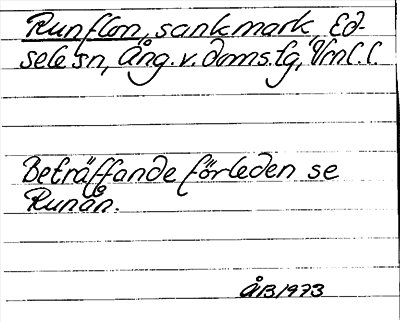 Runflon, sank mark, Ed-
sele sn, Ång. v. doms.lg, Vrnl. l.
Beträffande förleden se
Runån.
ÅB 1973